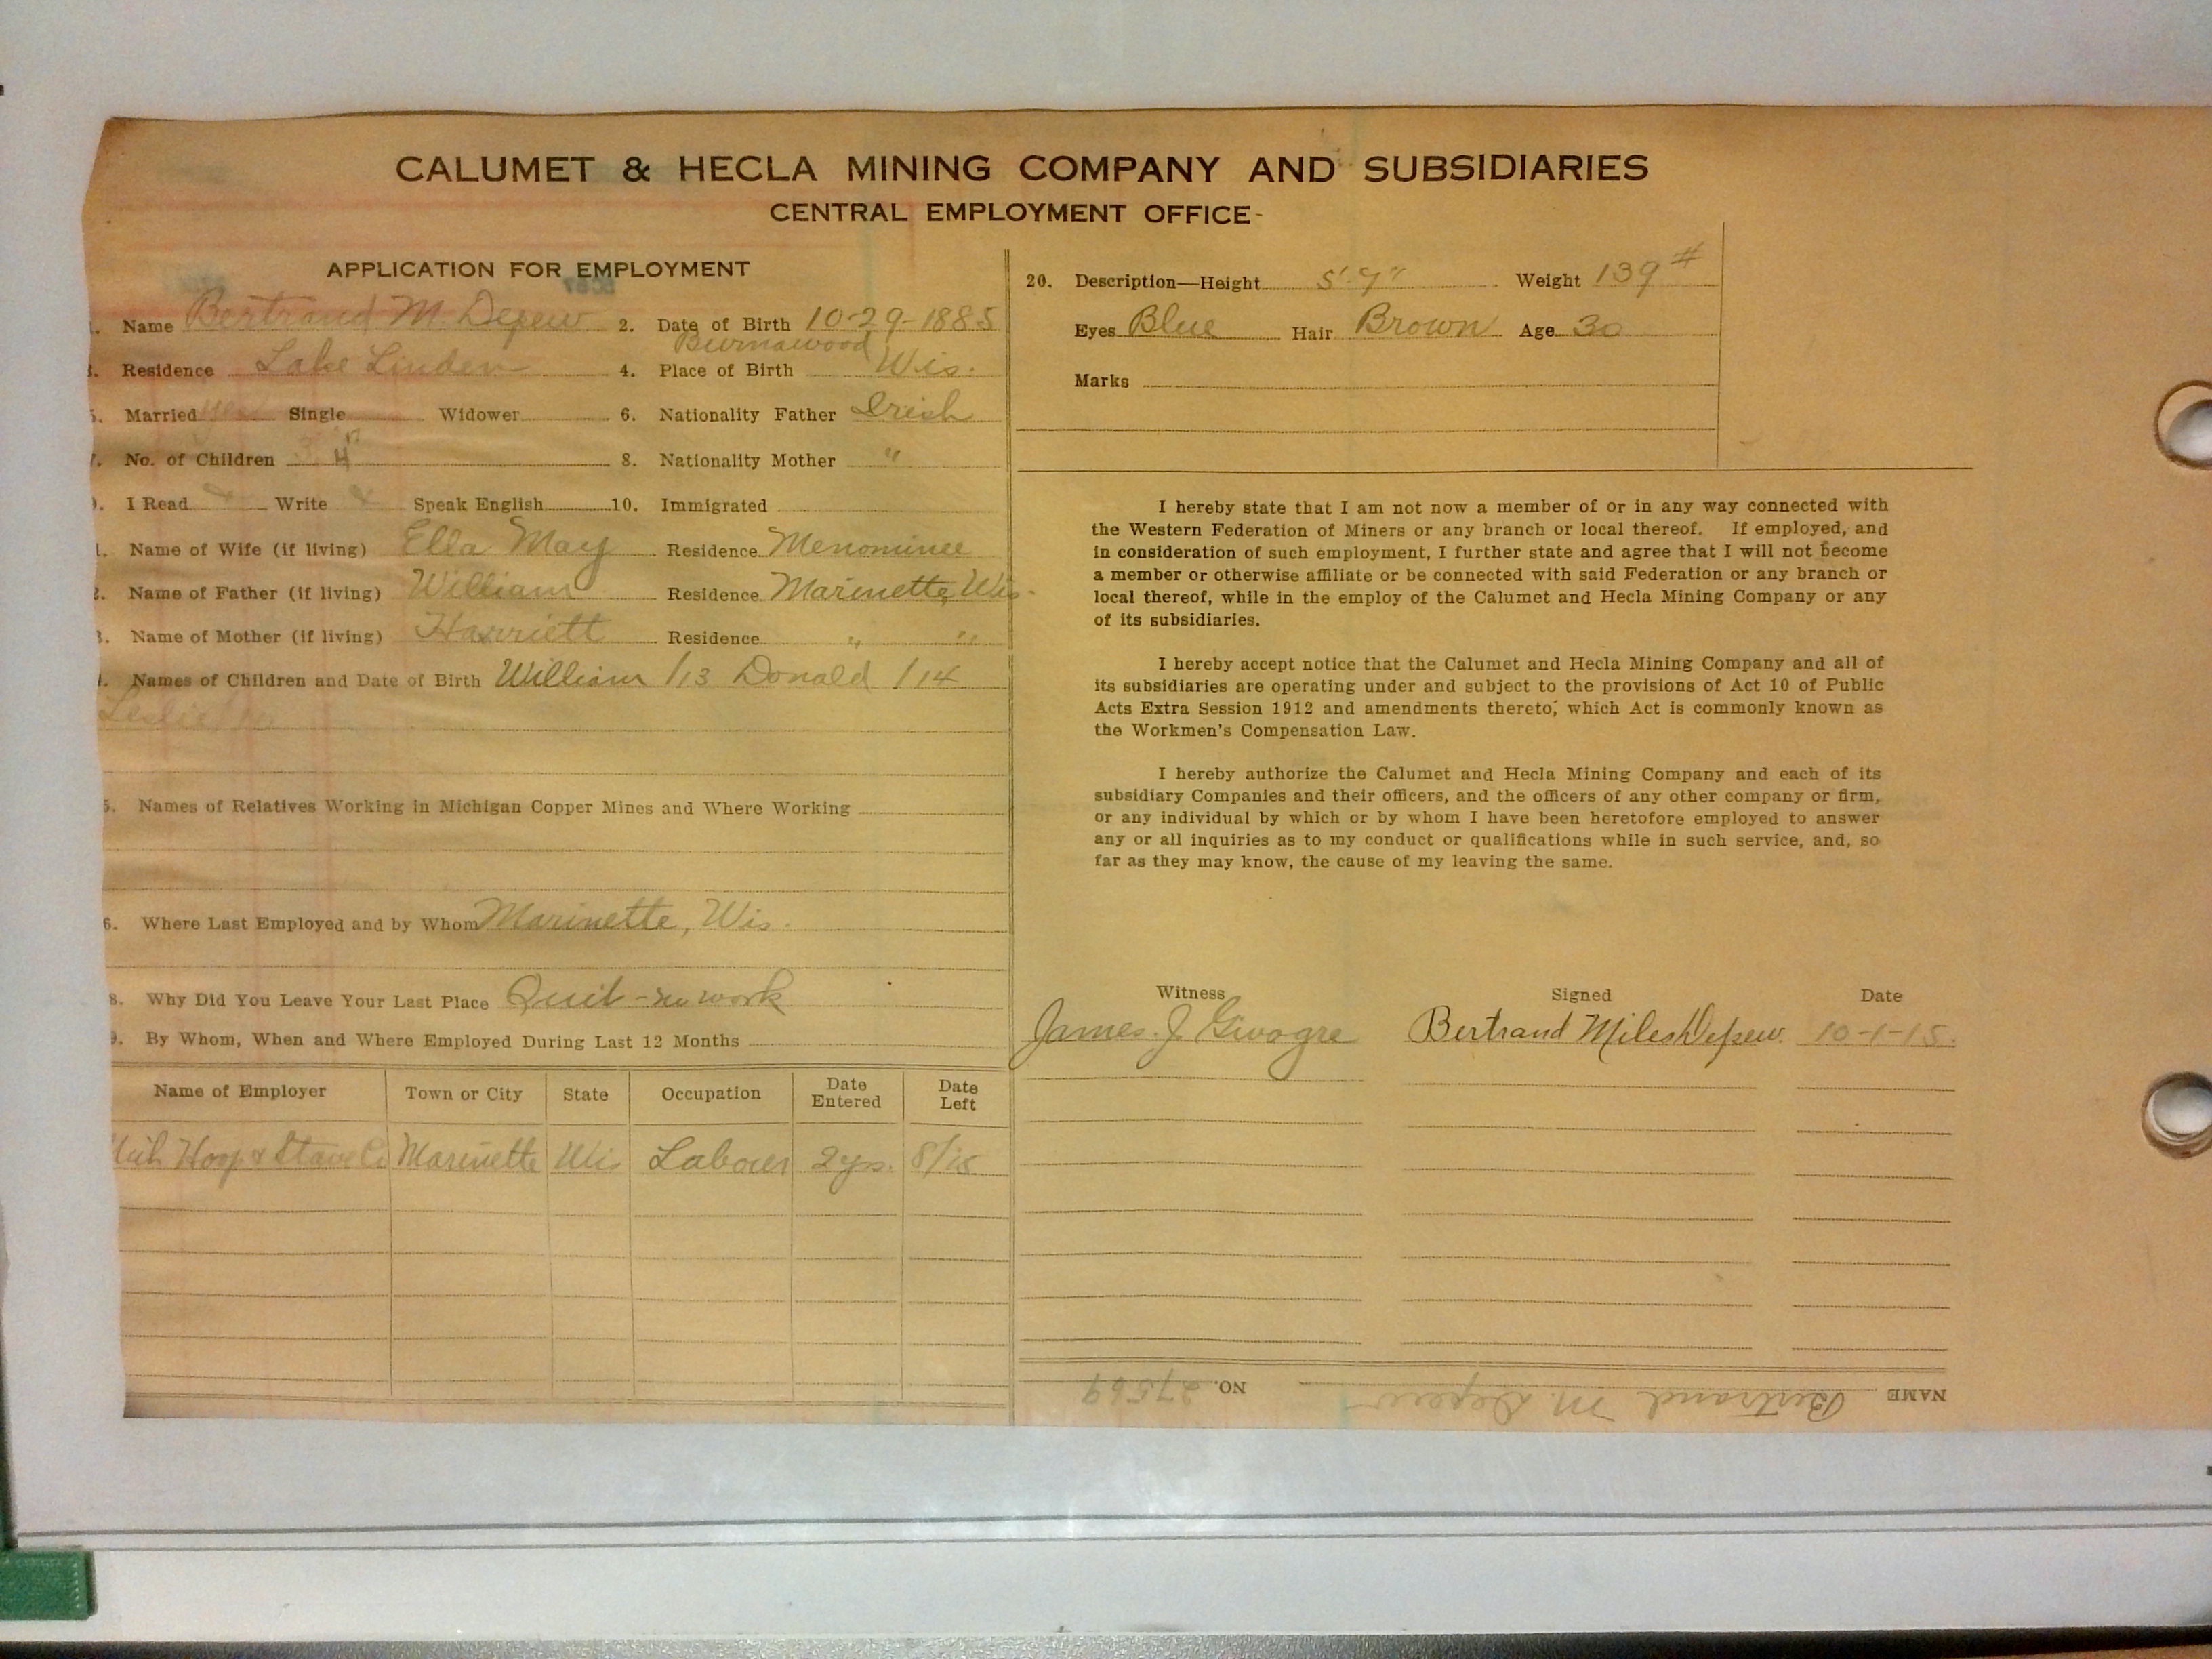 CALUMET & HECLA MINING COMPANY AND SUBSIDIARIES
CENTRAL EMPLOYMENT OFFICE
APPLICATION FOR EMPLOYMENT
Name Bertrand M. Depew 2. Date of Birth 10-29-1885
Residence Lake Linden 4. Place of Birth Wis.
Married Single Widower 6. Nationality Father Irish
No. of Children 4 8. Nationality Mother "
I Read Write Speak English 10. Immigrated
Name of Wife (if living) Ella May Residence Menominee
Name of Father (if living) William Residence Marinette, Wis.
Name of Mother (if living) Harriett Residence " "
Names of Children and Date of Birth William /13 Donald /14
Leslie
5. Names of Relatives Working in Michigan Copper Mines and Where Working
6. Where Last Employed and by Whom Marinette, Wis.
8. Why Did You Leave Your Last Place Quit - work
9. By Whom, When and Where Employed During Last 12 Months
Name of Employer Town or City State Occupation Date Entered Date Left
Hoop & Stave Marinette Wis Labour 2 yrs. 8/15
20. Description—Height 5'.7" Weight 139#
Eyes Blue Hair Brown Age 30
Marks
I hereby state that I am not now a member of or in any way connected with
the Western Federation of Miners or any branch or local thereof. If employed, and
in consideration of such employment, I further state and agree that I will not become
a member or otherwise affiliate or be connected with said Federation or any branch or
local thereof, while in the employ of the Calumet and Hecla Mining Company or any
of its subsidiaries.
I hereby accept notice that the Calumet and Hecla Mining Company and all of
its subsidiaries are operating under and subject to the provisions of Act 10 of Public
Acts Extra Session 1912 and amendments thereto, which Act is commonly known as
the Workmen's Compensation Law.
I hereby authorize the Calumet and Hecla Mining Company and each of its
subsidiary Companies and their officers, and the officers of any other company or firm,
or any individual by which or by whom I have been heretofore employed to answer
any or all inquiries as to my conduct or qualifications while in such service, and, so
far as they may know, the cause of my leaving the same.
Witness Signed Date
James J. Bertrand Miles Depew. 10-1-15.
NAME Bertrand M. Depew NO. 27569